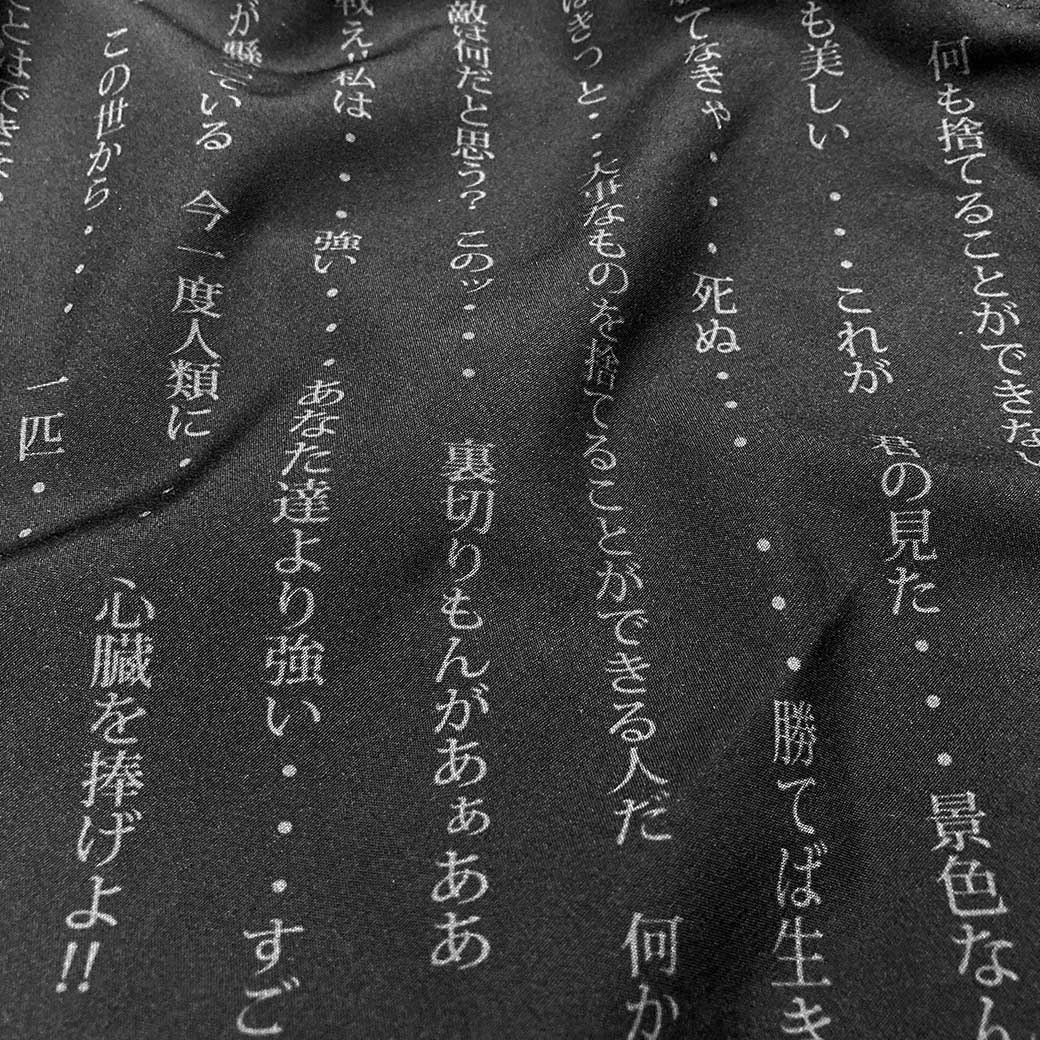 何も捨てることができな
も美しい・・・これが 君の見た・・・景色なら
てなきゃ・・・死ぬ・・・ ・・・勝てば生き
はきっと・・・大事なものを捨てることができる人だ 何か
敵は何だと思う? このッ・・・ 裏切りもんがあぁああ
戦え!!私は・・・強い・・・あなた達より強い・・・すご
が懸っている 今一度人類に・・ 心臓を捧げよ!!
この世から・・・一匹・・
とはでき